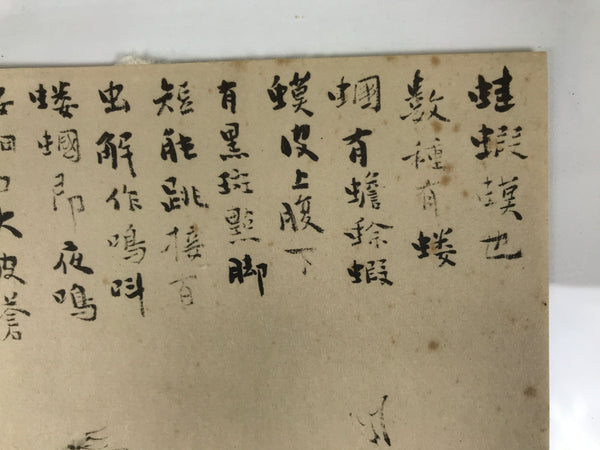 蛙蝦蟇也
數種有螻
蟈有蟾蜍蝦
蟆皮上腹下
有黒斑點脚
短能跳接百
虫解作鳴呌
螻蟈即夜鳴
大皮蒼